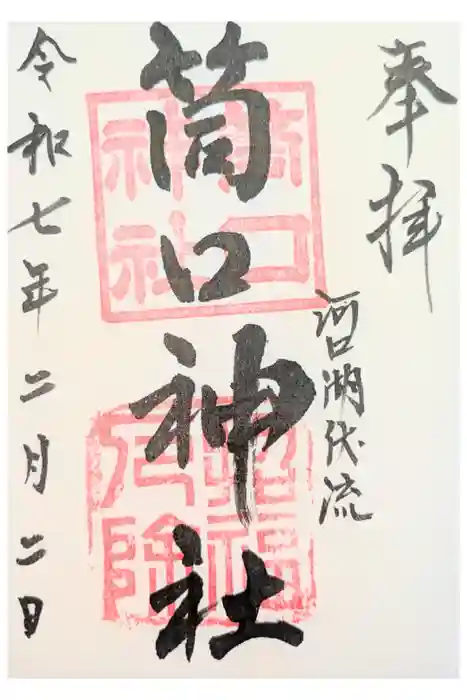 奉拝
河口湖伏流
筒口神社
筒口
神社
招福
厄除
令和七年二月二日